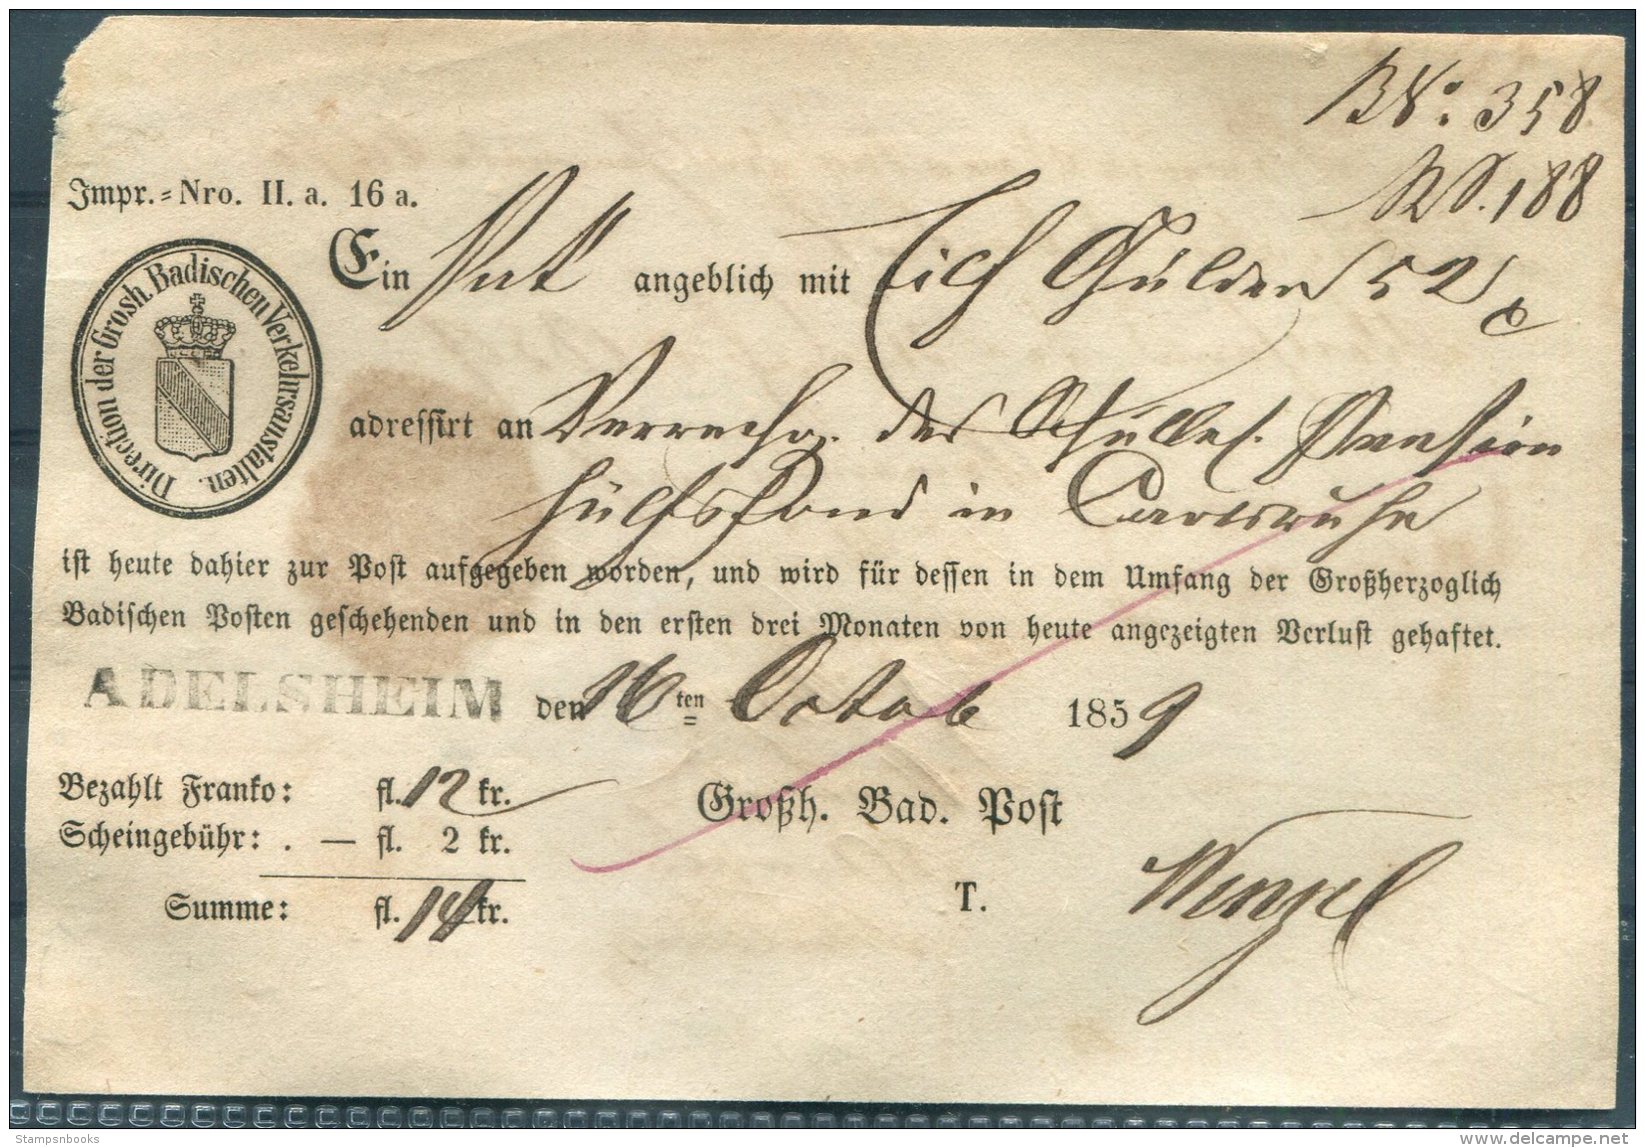 BN°: 358
188
Impr.=Nro. II. a. 16 a.
Direction der Grosh. Badischen Verkehrsanstalten.
Ein angeblich mit Gulden 52 x
adressirt an Verrechg. der Pension
hülfsfond in Carlsruhe
ist heute dahier zur Post aufgegeben worden, und wird für dessen in dem Umfang der Großherzoglich
Badischen Posten geschehenden und in den ersten drei Monaten von heute angezeigten Verlust gehaftet.
ADELSHEIM den 16ten Octob 1859
Bezahlt Franko: fl. 12 kr.
Scheingebühr: . — fl. 2 kr.
Summe: fl. 14 kr.
Großh. Bad. Post
T. Wenzel
Stampsnbooks
www.delcampe.net